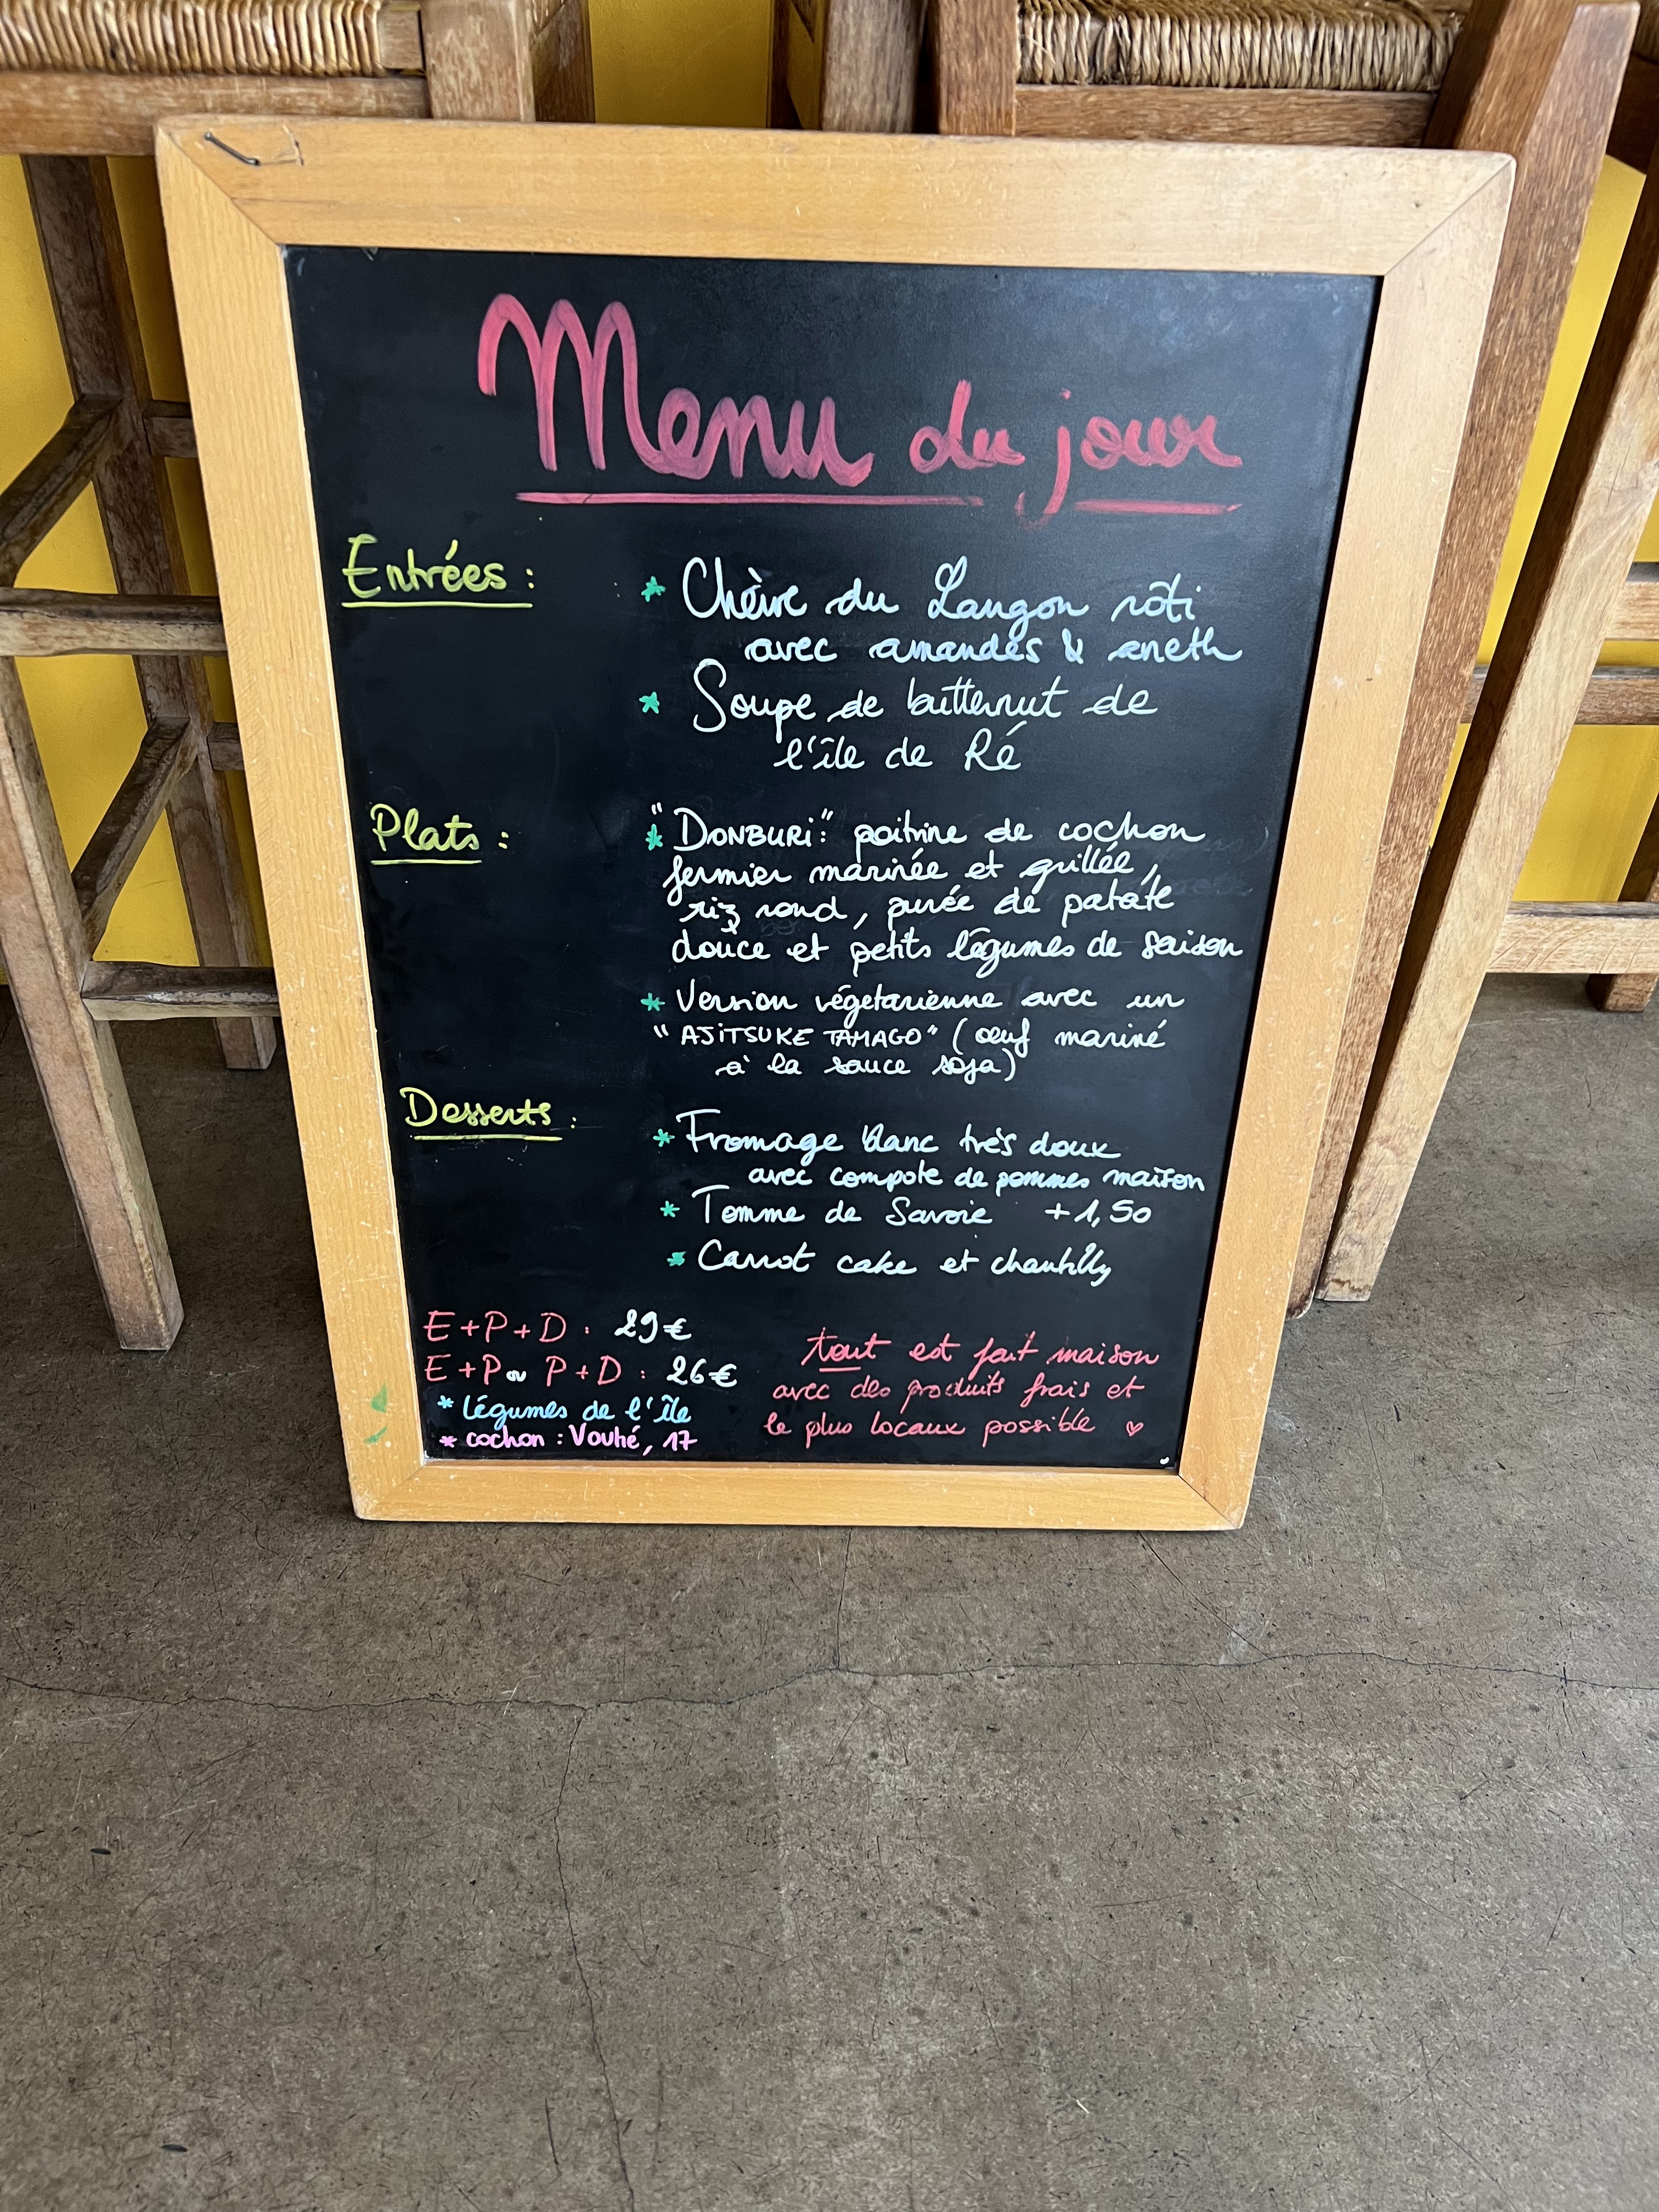 Menu du jour
Entrées :
* Chèvre du Langon rôti
avec amandes & aneth
* Soupe de butternut de
l'île de Ré
Plats :
* "DONBURI": poitrine de cochon
fermier marinée et grillée,
riz rond, purée de patate
douce et petits légumes de saison
* Version végétarienne avec un
"AJITSUKE TAMAGO" (œuf mariné
à la sauce soja)
Desserts :
* Fromage blanc très doux
avec compote de pommes maison
* Tomme de Savoie +1,50
* Carrot cake et chantilly
E+P+D : 29€
E+P ou P+D : 26€
* Légumes de l'île
* cochon : Vouhé, 17
tout est fait maison
avec des produits frais et
le plus locaux possible ♡